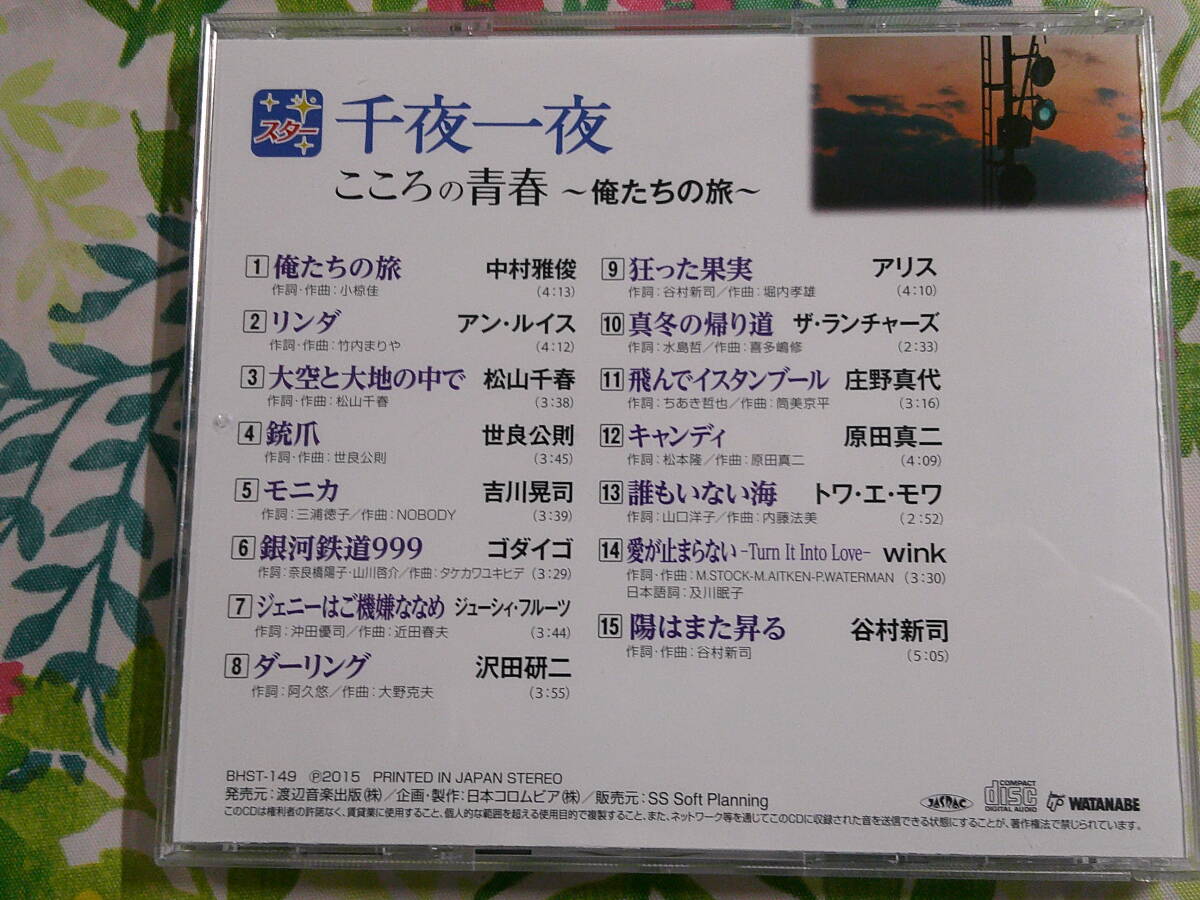 スター
千夜一夜
こころの青春 ～俺たちの旅～
1 俺たちの旅 中村雅俊
作詞・作曲：小椋佳 (4:13)
2 リンダ アン・ルイス
作詞・作曲：竹内まりや (4:12)
3 大空と大地の中で 松山千春
作詞・作曲：松山千春 (3:38)
4 銃爪 世良公則
作詞・作曲：世良公則 (3:45)
5 モニカ 吉川晃司
作詞：三浦徳子／作曲：NOBODY (3:39)
6 銀河鉄道999 ゴダイゴ
作詞：奈良橋陽子・山川啓介／作曲：タケカワユキヒデ (3:29)
7 ジェニーはご機嫌ななめ ジューシィ・フルーツ
作詞：沖田優司／作曲：近田春夫 (3:44)
8 ダーリング 沢田研二
作詞：阿久悠／作曲：大野克夫 (3:55)
9 狂った果実 アリス
作詞：谷村新司／作曲：堀内孝雄 (4:10)
10 真冬の帰り道 ザ・ランチャーズ
作詞：水島哲／作曲：喜多嶋修 (2:33)
11 飛んでイスタンブール 庄野真代
作詞：ちあき哲也／作曲：筒美京平 (3:16)
12 キャンディ 原田真二
作詞：松本隆／作曲：原田真二 (4:09)
13 誰もいない海 トワ・エ・モワ
作詞：山口洋子／作曲：内藤法美 (2:52)
14 愛が止まらない -Turn It Into Love- wink
作詞・作曲：M.STOCK-M.AITKEN-P.WATERMAN (3:30)
日本語詞：及川眠子
15 陽はまた昇る 谷村新司
作詞・作曲：谷村新司 (5:05)
BHST-149 ℗2015 PRINTED IN JAPAN STEREO
発売元：渡辺音楽出版(株)／企画・製作：日本コロムビア(株)／販売元：SS Soft Planning
JASRAC COMPACT disc DIGITAL AUDIO WATANABE
このCDは権利者の許諾なく、賃貸業に使用すること、個人的な範囲を超える使用目的で複製すること、また、ネットワーク等を通じてこのCDに収録された音を送信できる状態にすることが、著作権法で禁じられています。